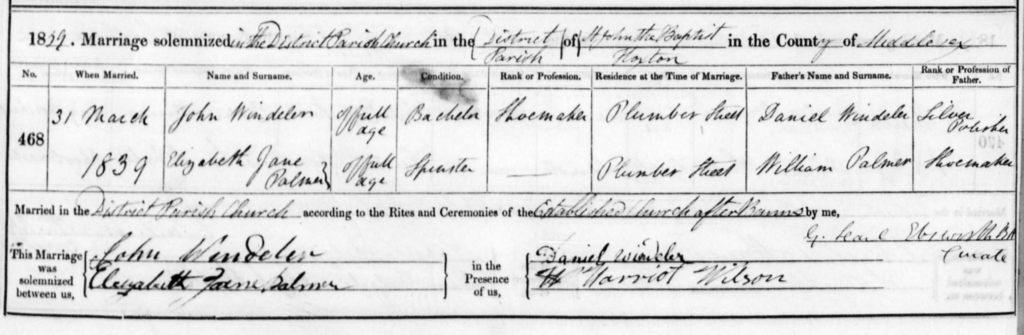 1839. Marriage solemnized in the District Parish Church in the District Parish of St John the Baptist Hoxton in the County of Middlesex
No. When Married. Name and Surname. Age. Condition. Rank or Profession. Residence at the Time of Marriage. Father's Name and Surname. Rank or Profession of Father.
468 31 March John Windeler Of full age Bachelor Shoemaker Plumber Street Daniel Windeler Silver Polisher
1839 Elizabeth Jane Palmer Of full age Spinster — Plumber Street William Palmer Shoemaker
Married in the District Parish Church according to the Rites and Ceremonies of the Established Church after Banns by me,
G. Ebsworth
Curate
This Marriage was solemnized between us, John Windeler Elizabeth Jane Palmer in the Presence of us, Daniel Windeler Harriot Wilson